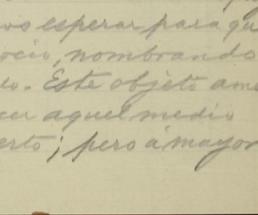 os esperar para qu
ocio, nombrando
lo. Este objeto am
cer aquel medio
erto; pero á mayor